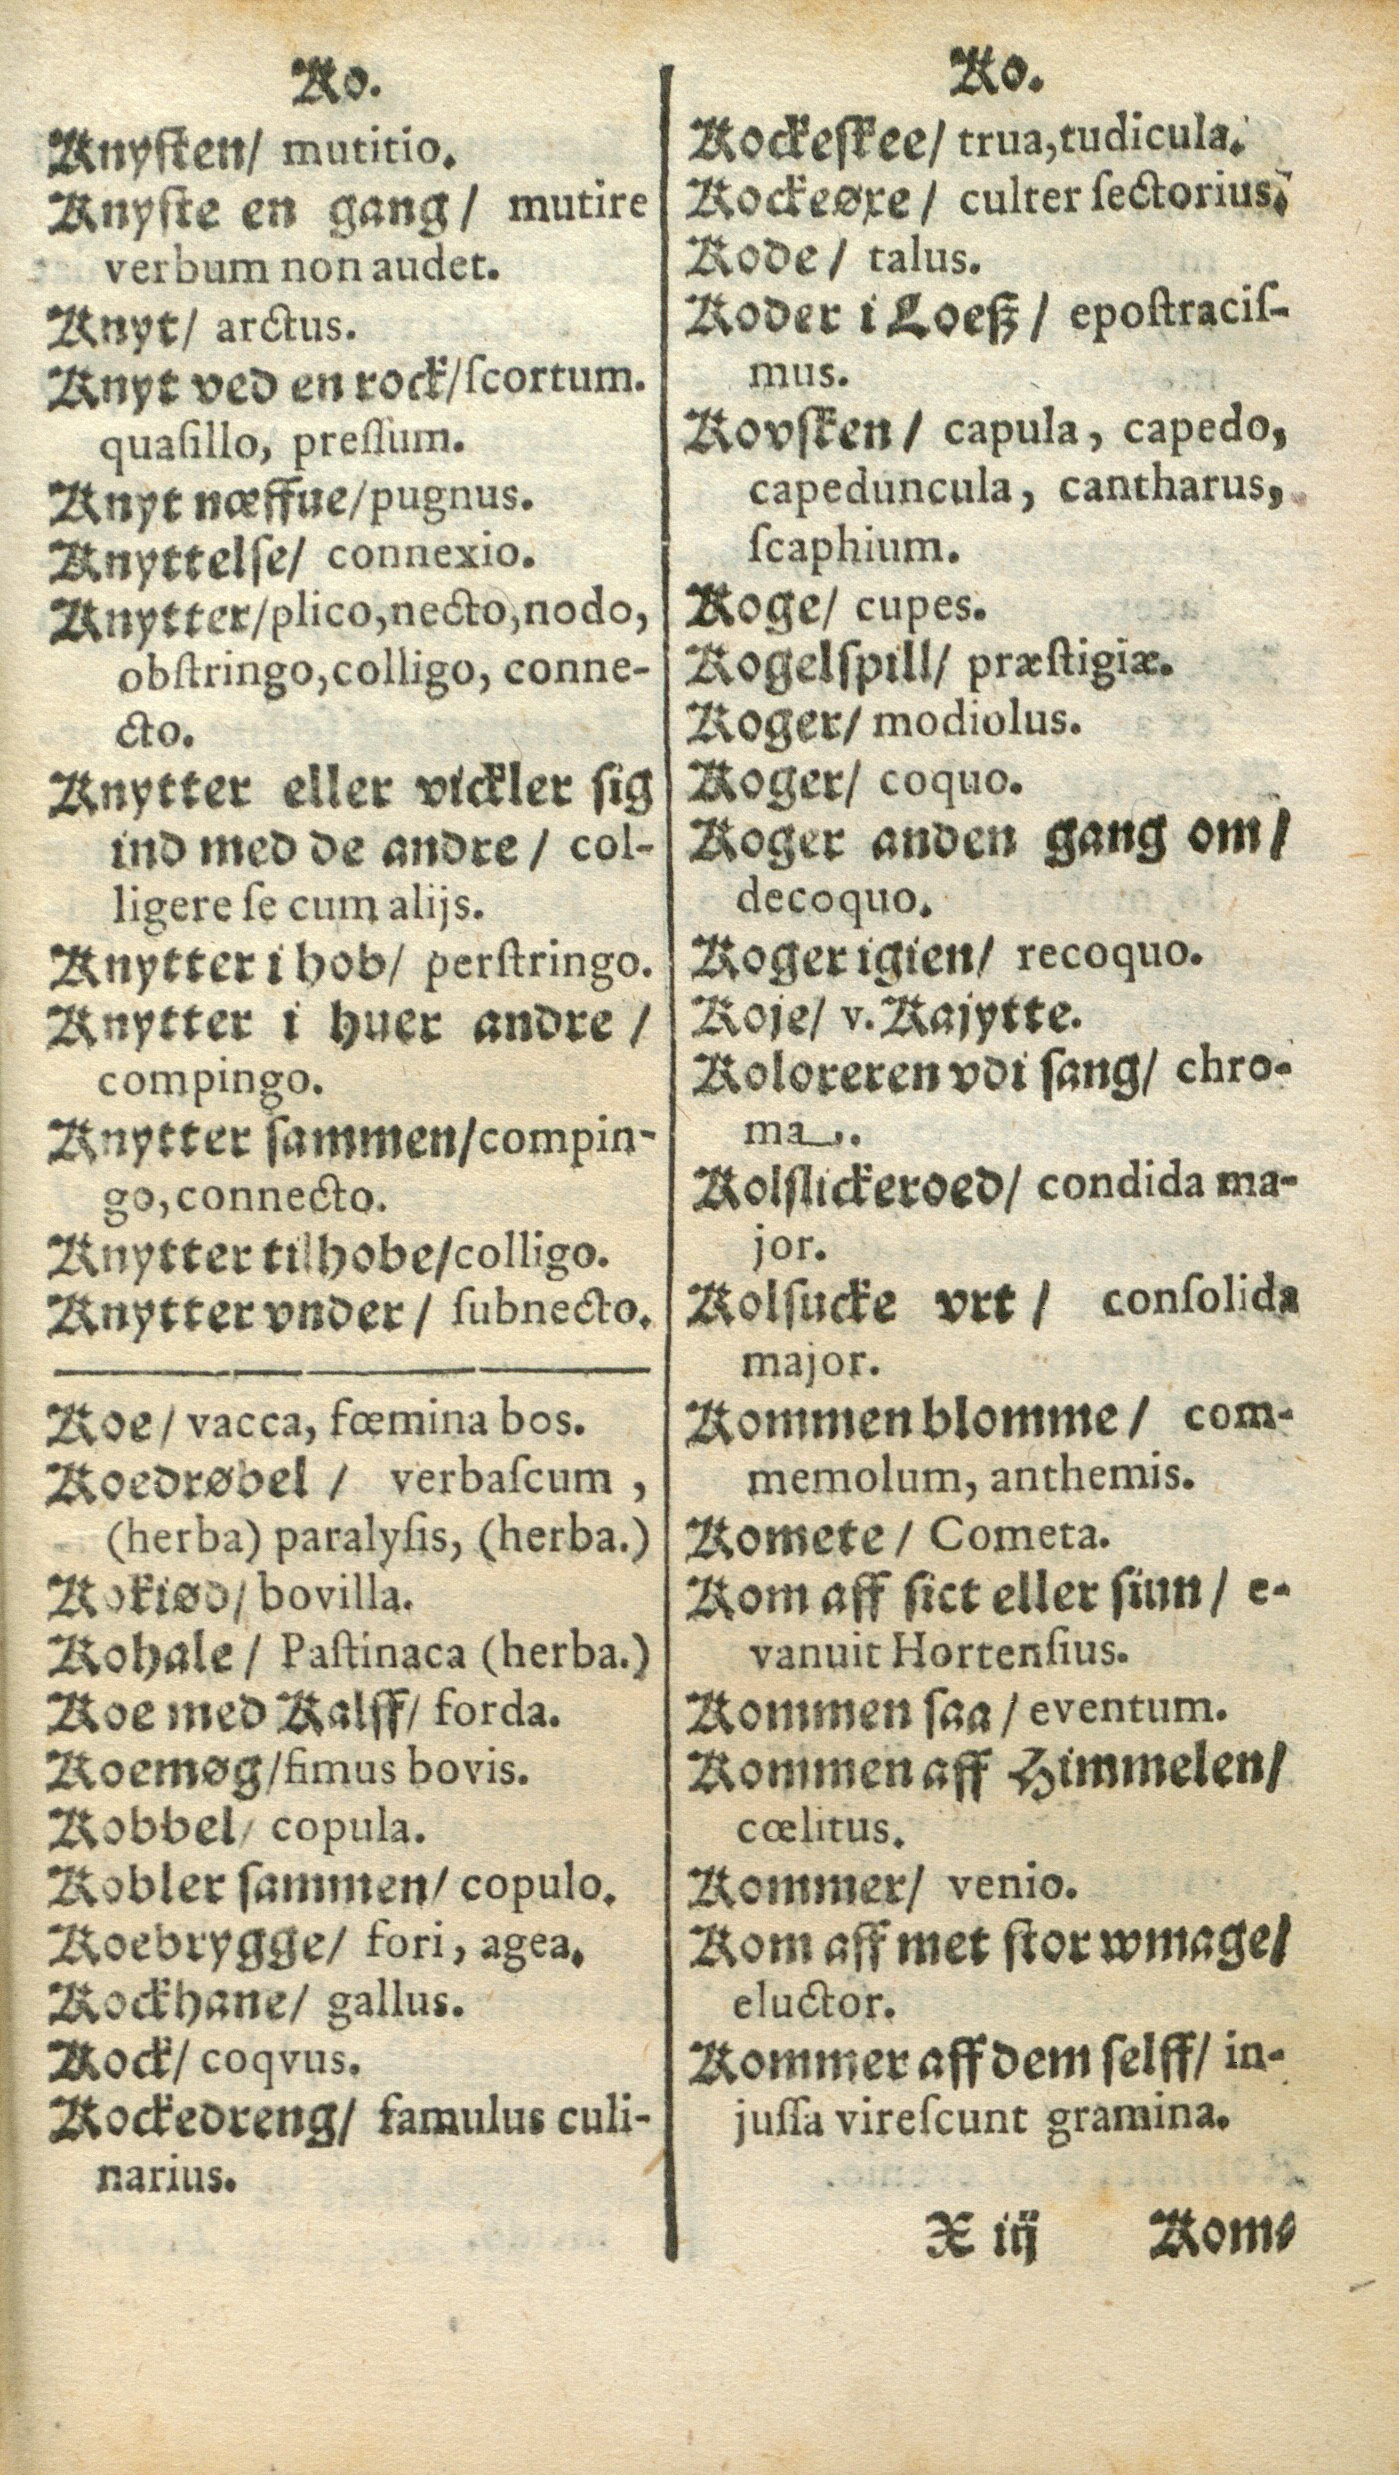 Ko.
Knysten/ mutitio.
Knyste en gang/ mutire
verbum non audet.
Knyt/ arctus.
Knyt ved en rock/ſcortum.
quaſillo, preſſum.
Knyt næffue/pugnus.
Knyttelſe/ connexio.
Knytter/plico,necto,nodo,
obſtringo,colligo, conne-
cto.
Knytter eller vickler ſig
ind med de andre/ col-
ligere ſe cum alijs.
Knytter i hob/ perſtringo.
Knytter i huer andre/
compingo.
Knytter ſammen/compin-
go,connecto.
Knytter tilhobe/colligo.
Knytter vnder/ ſubnecto.
Koe/ vacca, fœmina bos.
Koedrøbel/ verbaſcum,
(herba) paralyſis, (herba.)
Kokiød/ bovilla.
Kohale/ Paſtinaca (herba.)
Koe med Kalff/ forda.
Koemøg/fimus bovis.
Kobbel/ copula.
Kobler ſammen/ copulo.
Koebrygge/ fori, agea.
Kockhane/ gallus.
Kock/ coqvus.
Kockedreng/ famulus culi-
narius.
Ko.
Kockeſkee/ trua,tudicula.
Kockeøxe/ culter ſectorius.
Kode/ talus.
Koder i Loeß/ epoſtraciſ-
mus.
Kovſken/ capula, capedo,
capeduncula, cantharus,
ſcaphium.
Koge/ cupes.
Kogelſpill/ præſtigiæ.
Koger/ modiolus.
Koger/ coquo.
Koger anden gang om/
decoquo.
Koger igien/ recoquo.
Koje/ v. Kajytte.
Koloreren vdi ſang/ chro-
ma.
Kolſlickeroed/ condida ma-
jor.
Kolſucke vrt/ conſolida
major.
Kommen blomme/ com-
memolum, anthemis.
Komete/ Cometa.
Kom aff ſict eller ſiun/ e-
vanuit Hortenſius.
Kommen ſaa/ eventum.
Kommen aff Himmelen/
cœlitus.
Kommer/ venio.
Kom aff met ſtor wmage/
eluctor.
Kommer aff dem ſelff/ in-
juſſa vireſcunt gramina.
X iij Kom-